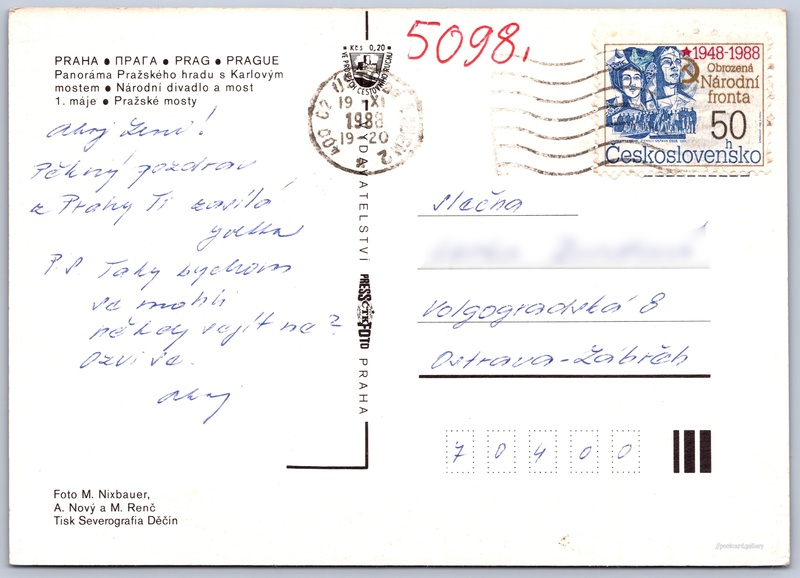 PRAHA ● ПРАГА ● PRAG ● PRAGUE
Panoráma Pražského hradu s Karlovým
mostem ● Národní divadlo a most
1. máje ● Pražské mosty
Ahoj Leni!
Pěkný pozdrav
z Prahy Ti zasílá
P.S Taky bychom
se mohli
někdy sejít ne?
Ozvi se.
Ahoj
Foto M. Nixbauer,
A. Nový a M. Renč
Tisk Severografia Děčín
Kčs 0,20
VE PROSPĚCH CESTOVNÍHO RUCHU
VYDAVATELSTVÍ PRESSFOTO PRAHA
ČTK
5098,
400 02 ÚSTÍ
19 XI
1988
19-20
2
★1948-1988
Obrozená
Národní
fronta
50 h
Československo
slečna
Volgogradská 8
Ostrava-Zábřeh
70400
@postcard.gallery